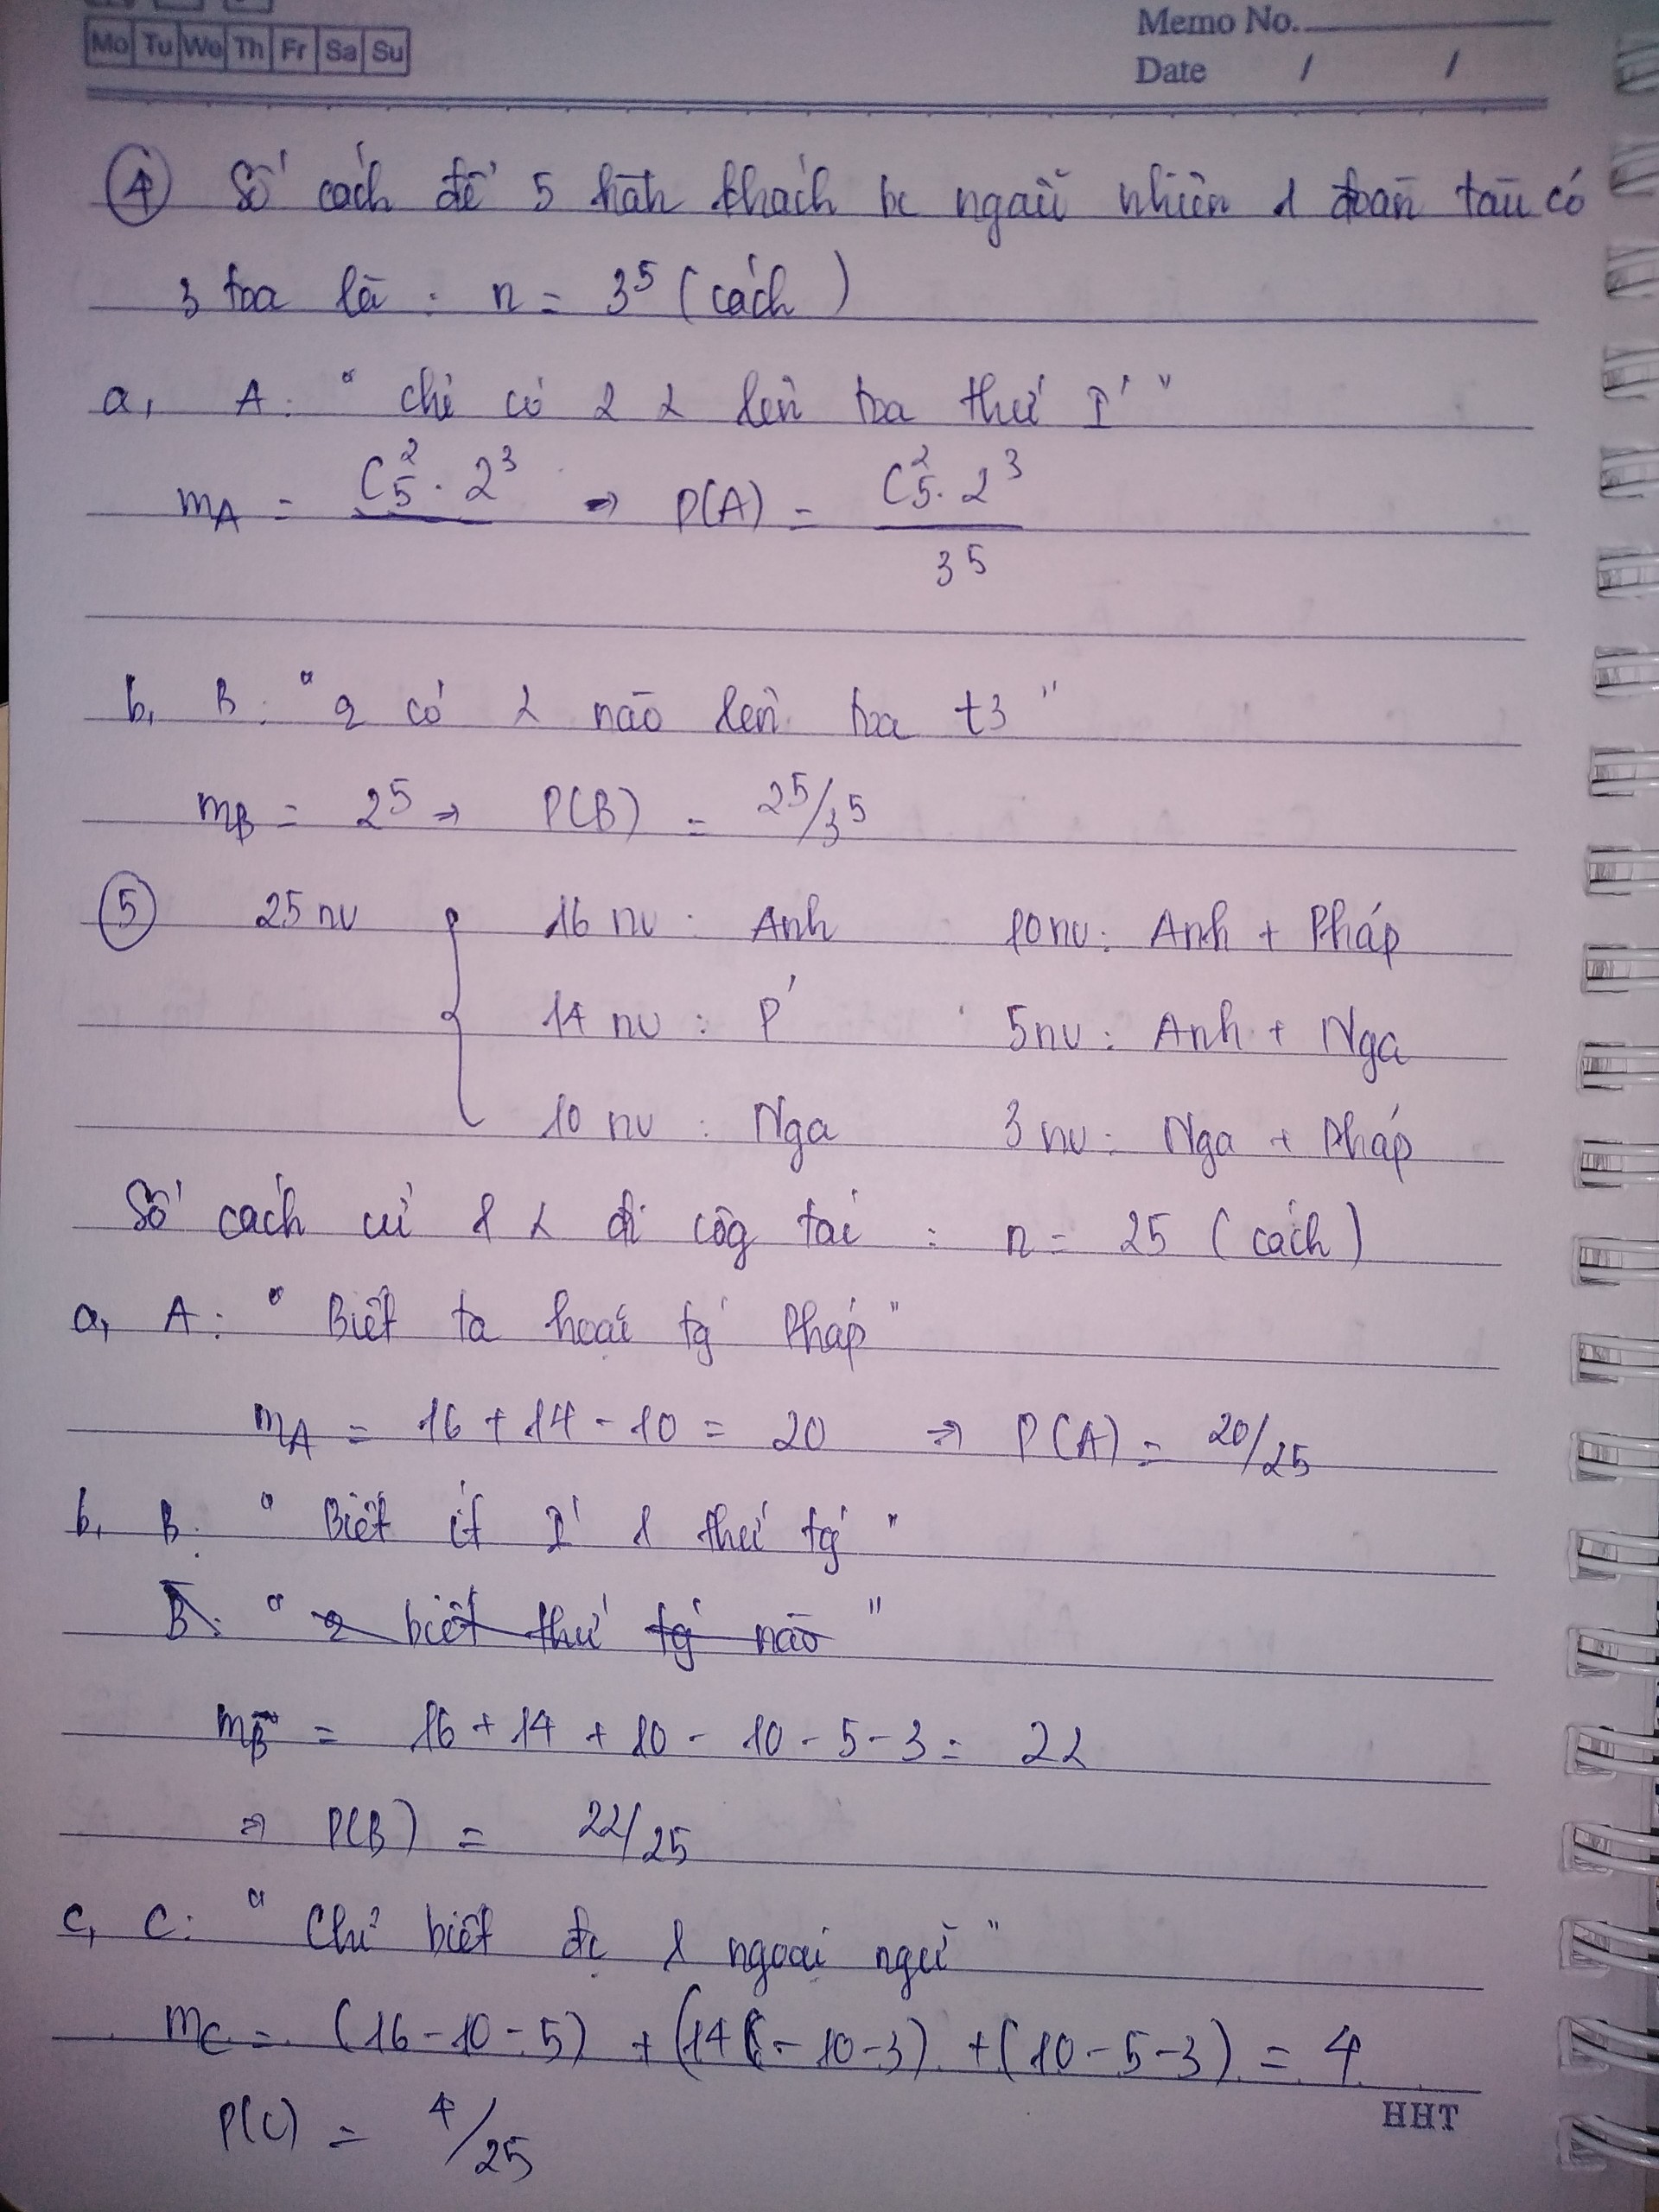 Mo Tu We Th Fr Sa Su
Memo No.
Date / /
④ Số cách để 5 hành khách ngẫu nhiên 1 đoàn tàu có
3 toa là : n = 3⁵ (cách)
a, A : " chỉ có 2 lên toa thứ I' "
mA = C₅² . 2³ ⇒ P(A) = C₅² . 2³ / 3⁵
b, B : " có nào lên toa t3 "
mB = 2⁵ ⇒ P(B) = 2⁵/3⁵
⑤ 25 nv { 16 nv : Anh 10 nv : Anh + Pháp
14 nv : P' 5 nv : Anh + Nga
10 nv : Nga 3 nv : Nga + Pháp
Số cách cử 1 đi côg tác : n = 25 (cách)
a, A : " Biết ta hoặc tg' Pháp "
mA = 16 + 14 - 10 = 20 ⇒ P(A) = 20/25
b, B : " Biết ít I' 1 thứ tg' "
B̅ : " biết thứ tg' nào "
mB = 16 + 14 + 10 - 10 - 5 - 3 = 22
⇒ P(B) = 22/25
c, C : " Chỉ biết đc 1 ngoại ngữ "
mC = (16 - 10 - 5) + (14 - 10 - 3) + (10 - 5 - 3) = 4
P(C) = 4/25
HHT